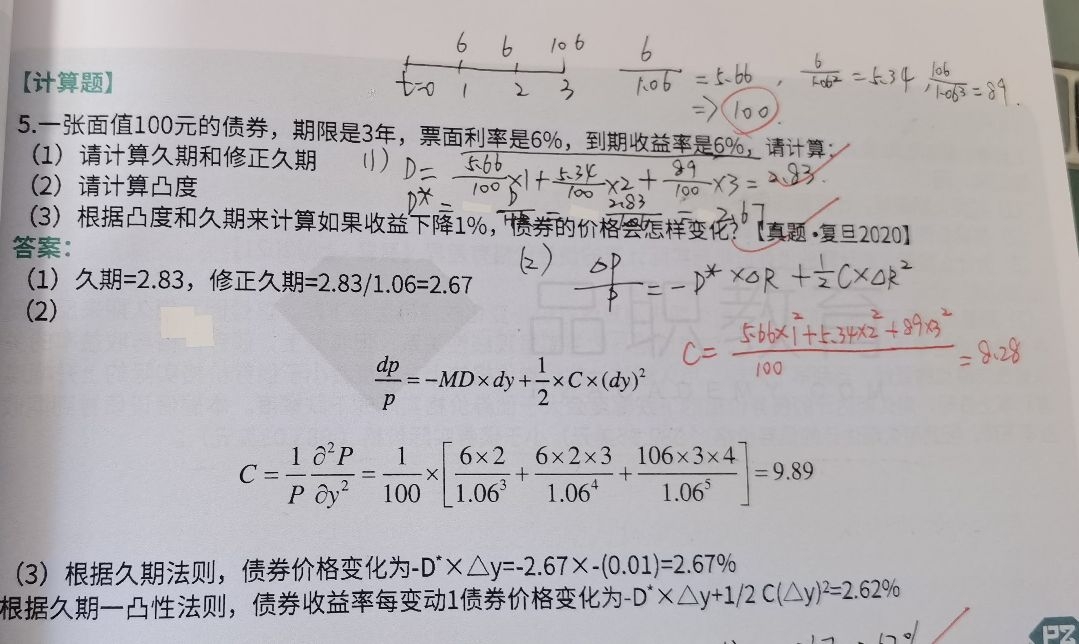 6 6 106
t=0 1 2 3
6/1.06 = 5.66 , 6/1.06² = 5.34 , 106/1.06³ = 89 .
=> 100
【计算题】
5.一张面值100元的债券，期限是3年，票面利率是6%，到期收益率是6%，请计算：
（1）请计算久期和修正久期
(1) D= 5.66/100 ×1+ 5.34/100 ×2 + 89/100 ×3 = 2.83.
（2）请计算凸度
D* = D = 2.83 = 2.67
（3）根据凸度和久期来计算如果收益下降1%，债券的价格会怎样变化？【真题·复旦2020】
答案：
（1）久期=2.83，修正久期=2.83/1.06=2.67
(2) ΔP/P = -D* ×ΔR + 1/2 C×ΔR²
（2）
品职教育
C= (5.66×1²+5.34×2²+89×3²)/100 = 8.28
dp/p = −MD×dy + 1/2 ×C×(dy)²
C = 1/P ∂²P/∂y² = 1/100 × [6×2/1.06³ + 6×2×3/1.06⁴ + 106×3×4/1.06⁵] = 9.89
（3）根据久期法则，债券价格变化为-D*×△y=-2.67×-(0.01)=2.67%
根据久期一凸性法则，债券收益率每变动1债券价格变化为-D*×△y+1/2 C(△y)²=2.62%
PZ